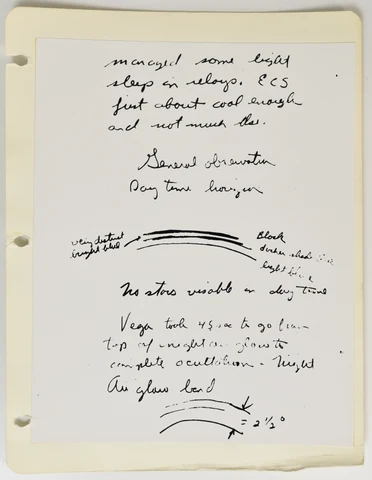 managed some light
sleep in relays. ECS
just about cool enough
and not much else.
General observation
Day time horizon
very distinct
bright blue
Black
darker shade blue
light blue
No stars visible in day time
Vega took 45 sec to go from
top of night air glow to
complete occultation - Night
Air glow band
= 2 1/2°